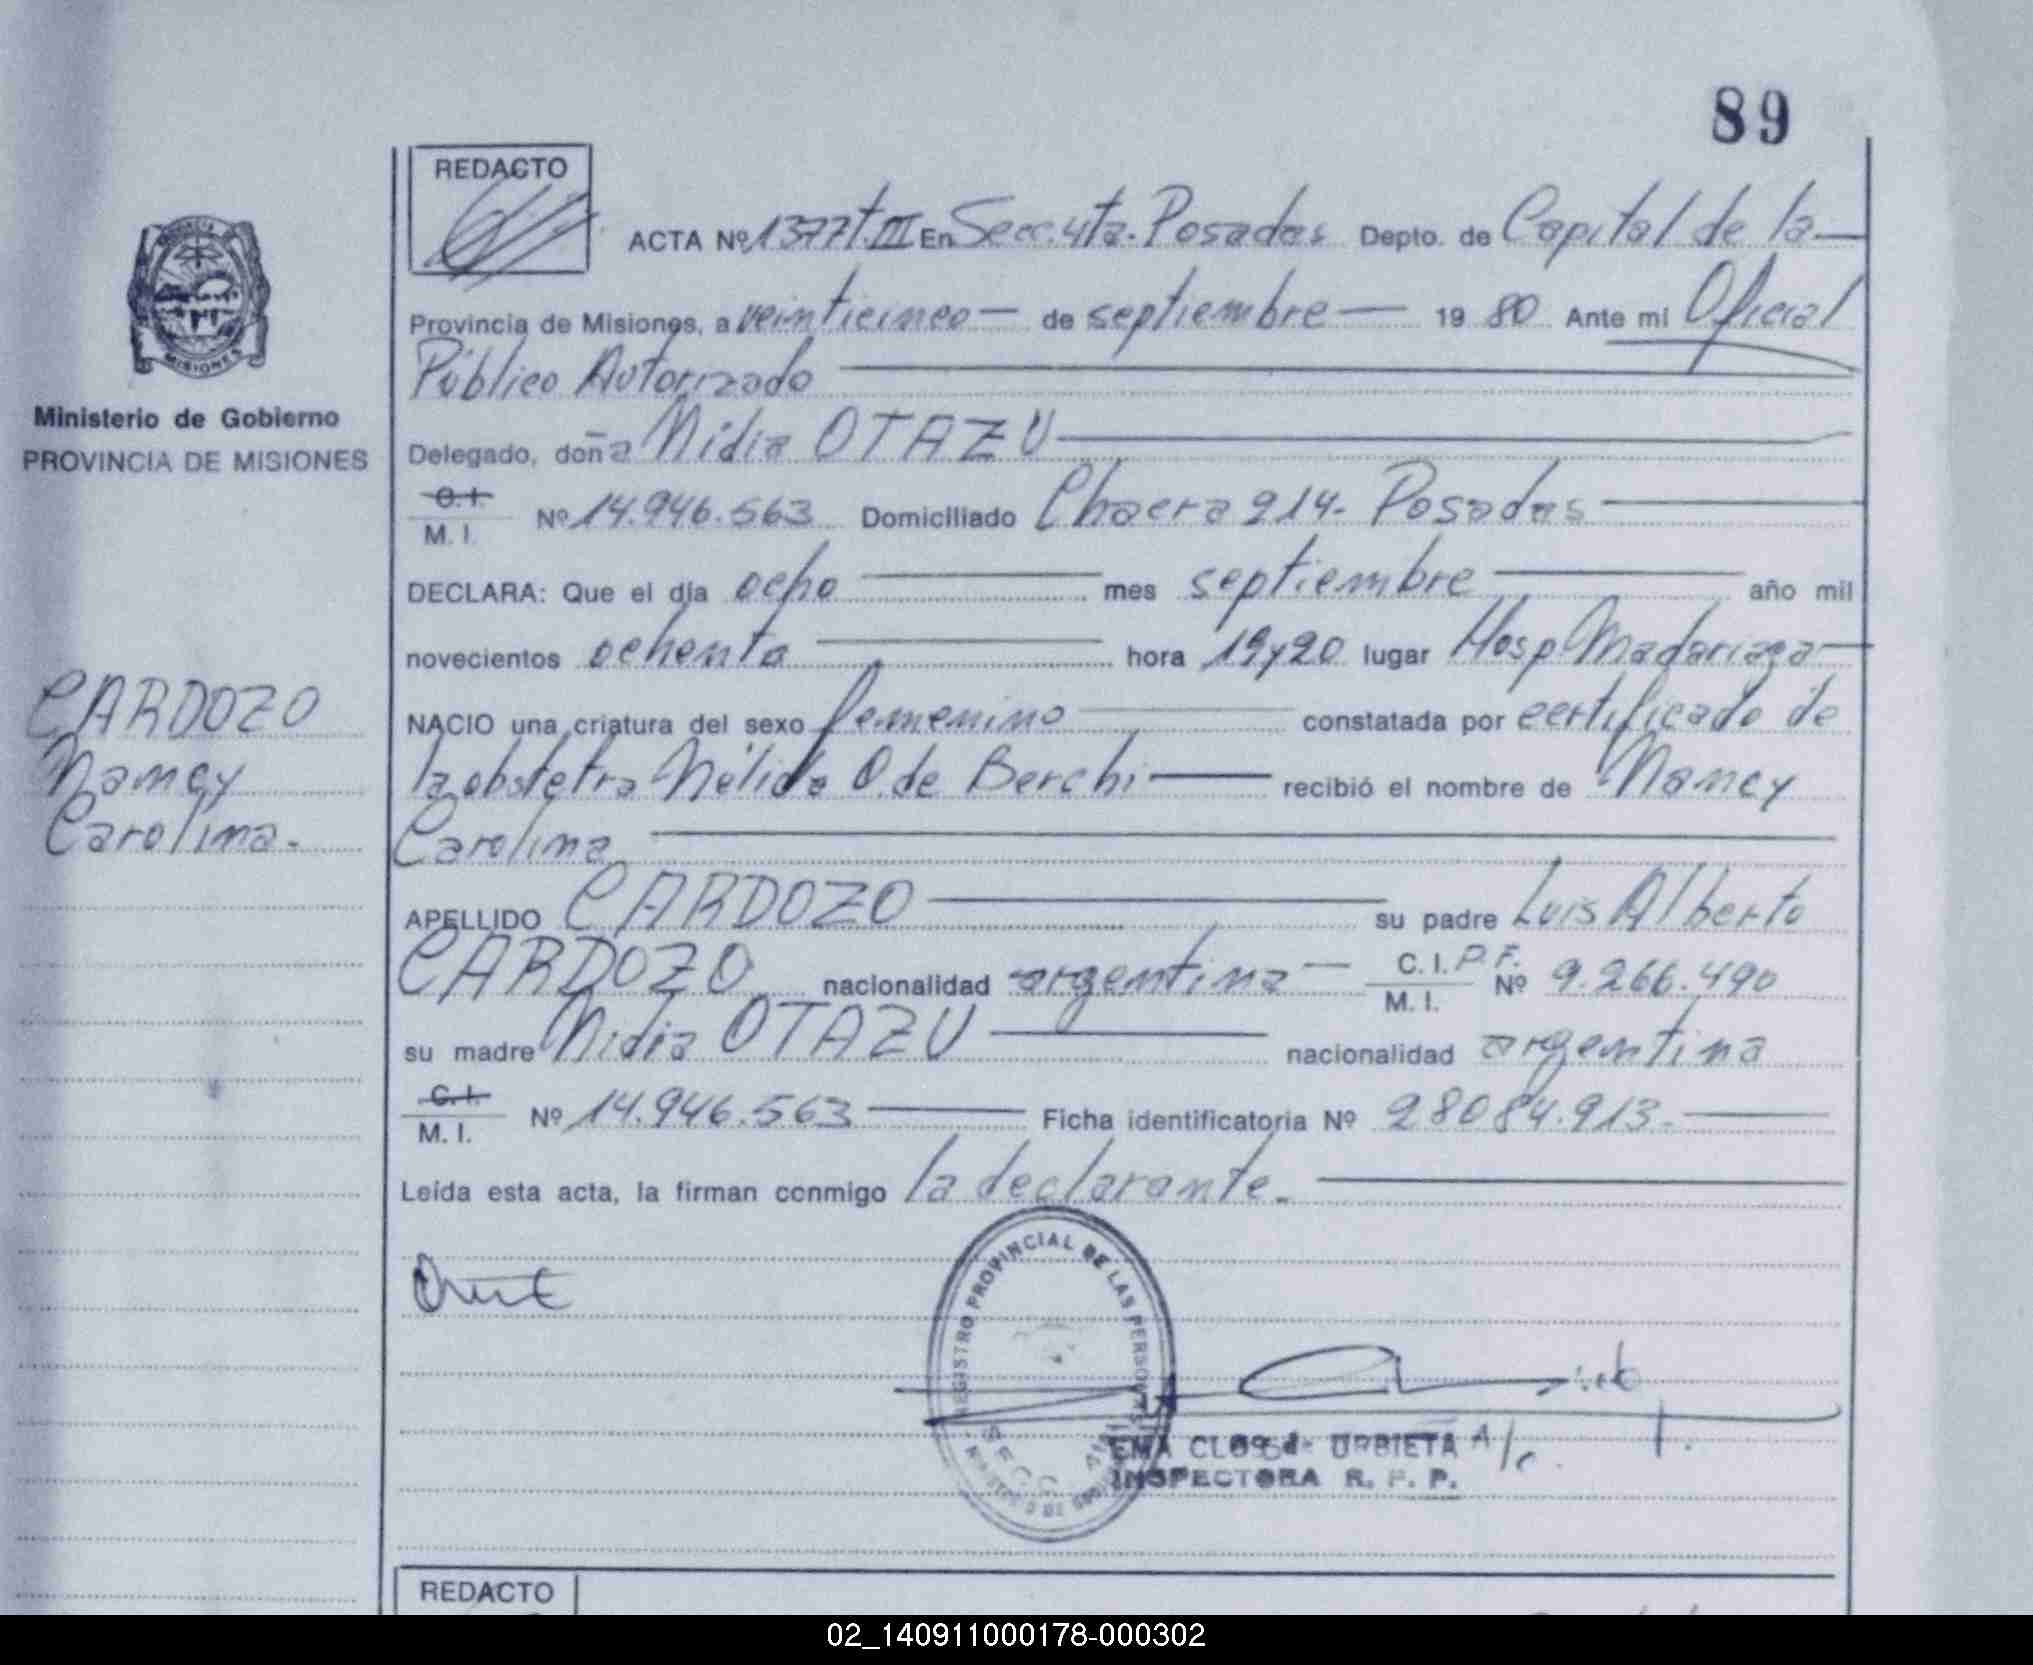 89
REDACTO
ACTA Nº 1377 t. III En Secc. 4ta. Posadas Depto. de Capital de la
Provincia de Misiones, a veinticinco de septiembre 1980 Ante mi Oficial
Público Autorizado
Delegado, doña Nidia OTAZU
C. I.
M. I. Nº 14.946.563 Domiciliado Chacra 214- Posadas
DECLARA: Que el día ocho mes septiembre año mil
novecientos ochenta hora 19y20 lugar Hosp Madariaga
NACIO una criatura del sexo femenino constatada por certificado de
la obstetra Nélida O. de Berchi recibió el nombre de Nancy
Carolina
APELLIDO CARDOZO su padre Luis Alberto
CARDOZO nacionalidad argentina C. I. P.F.
M. I. Nº 9.266.490
su madre Nidia OTAZU nacionalidad argentina
C. I.
M. I. Nº 14.946.563 Ficha identificatoria Nº 28084.913.
Leída esta acta, la firman conmigo la declarante.
MISIONES
Ministerio de Gobierno
PROVINCIA DE MISIONES
CARDOZO
Nancy
Carolina.
REGISTRO PROVINCIAL DE LAS PERSONAS
SECC. 4ta
EMA CLOSS de URBIETA A/c.
INSPECTORA R. P. P.
REDACTO
02_140911000178-000302